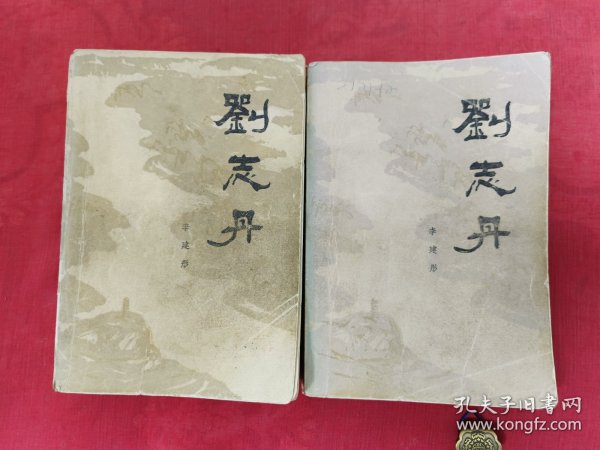 劉志丹
李建彤
劉志丹
李建彤
孔夫子旧书网
www.kongfz.com